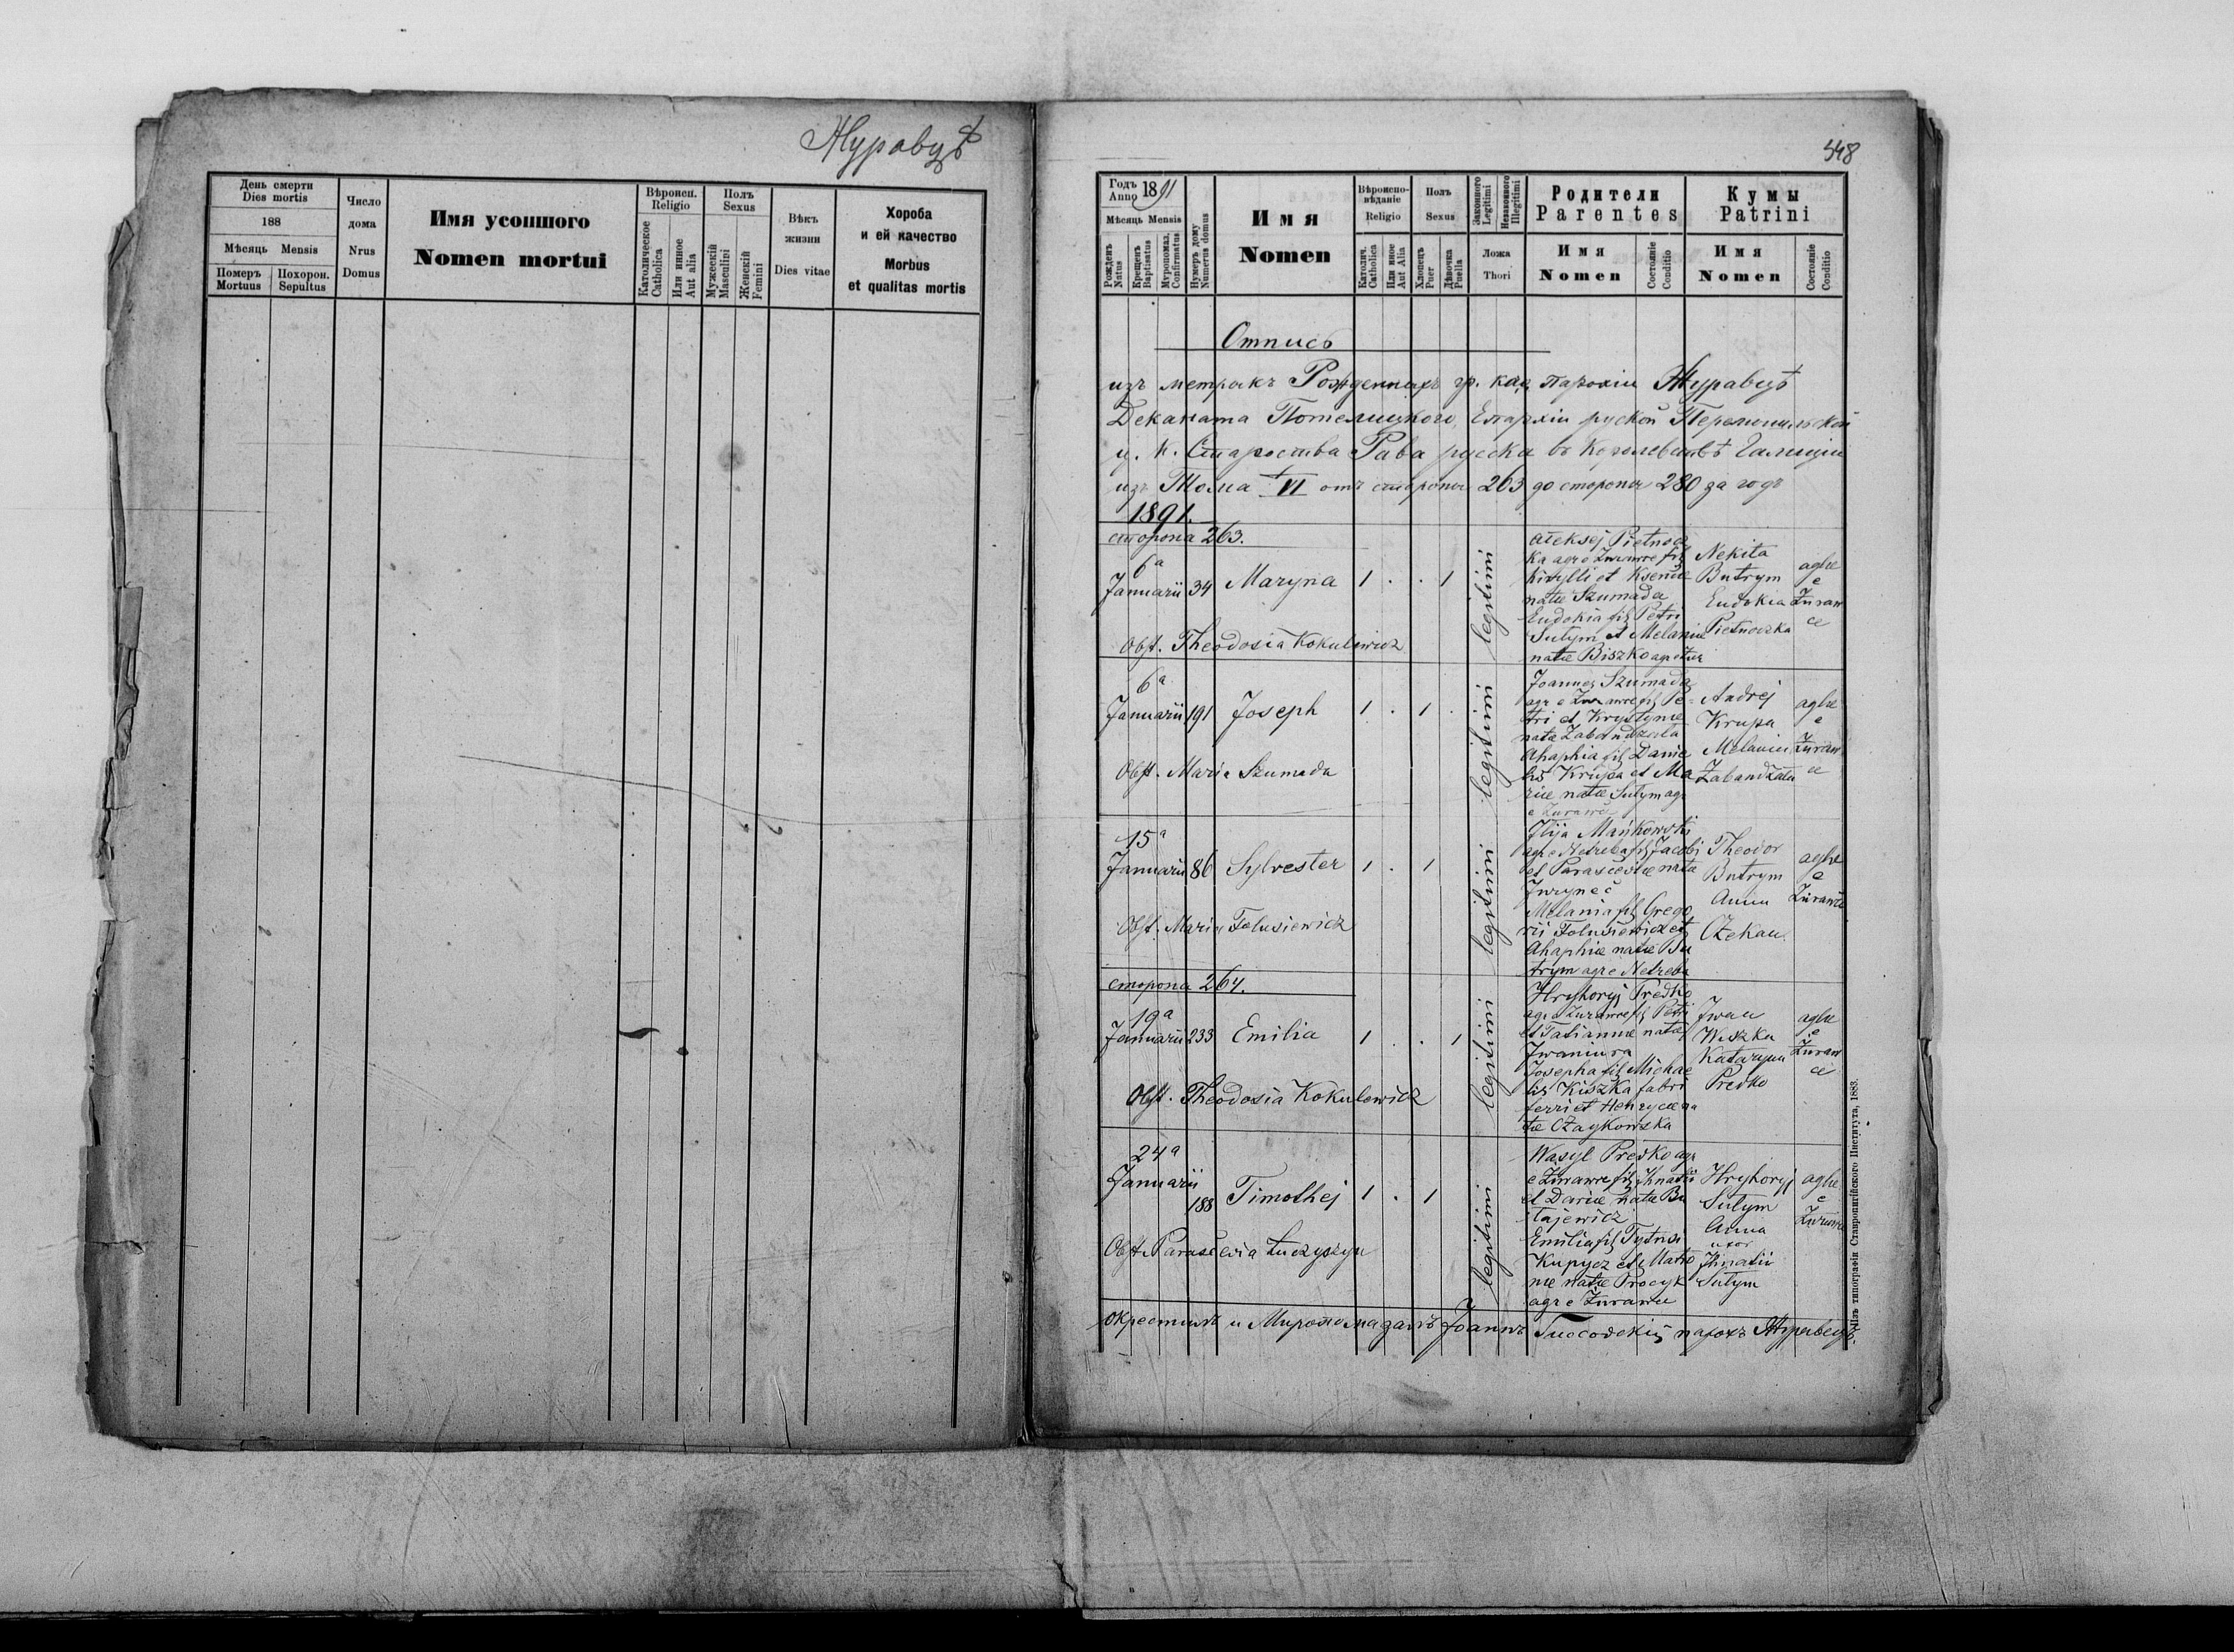 Журавцѣ
День смерти
Dies mortis
188
Мѣсяць Mensis
Померъ
Mortuus
Похорон.
Sepultus
Число
дома
Nrus
Domus
Имя усопшого
Nomen mortui
Вѣроисп.
Religio
Католическое
Catholica
Или инное
Aut alia
Полъ
Sexus
Мужескій
Masculini
Женскій
Femini
Вѣкъ
жизни
Dies vitae
Хороба
и ей качество
Morbus
et qualitas mortis
548
Годъ
Anno 1891
Мѣсяць Mensis
Рожденъ
Natus
Крещенъ
Baptisatus
Муропомаз.
Confirmatus
Нумеръ дому
Numerus domus
Имя
Nomen
Вѣроиспо-
вѣданіе
Religio
Католич.
Catholica
Или иное
Aut Alia
Полъ
Sexus
Хлопецъ
Puer
Дѣвочка
Puella
Законного
Legitimi
Незаконного
Illegitimi
Ложа
Thori
Родители
Parentes
Имя
Nomen
Состояніе
Conditio
Кумы
Patrini
Имя
Nomen
Состояніе
Conditio
Отпись
изъ метрикъ Рожденныхъ гр. кат. парохіи Журавцѣ
Деканата Потелицкого, Епархіи руской Перемышльской
ц. к. Староства Рава русска въ Королевствѣ Галиціи
изъ Тома VI отъ стороны 263 до стороны 280 за годъ
1891.
сторона 263.
6a
Januarii 34 Maryna 1 . . 1
legitimi
Aleksej Pietnocz
ka agr e Zurawce fil
Kirylli et Kseniae
natae Szumada
Eudokia fil Petri
Sutym et Melaniae
natae Biszko agr e Zur
Nekita
Butrym
Eudokia
Pietnoczka
aglae
e
Zuraw
ce
Obst. Theodosia Kokulewicz
6a
Januarii 191 Joseph 1 . 1 .
legitimi
Joannes Szumada
agr e Zurawce fil Pe
tri et Krystynae
nata Zabandzala
Ahaphia fil Danie
lis Krupa et Ma
riae natae Sutym agr
e Zurawce
Andrej
Krupa
Melania
Zabandzala
aglae
e
Zuraw
ce
Obst. Maria Szumada
15a
Januarii 86 Sylvester 1 . 1
legitimi
Ilija Mańkowski
agr e Netreba fil Jacobi
et Parascevae nata
Juryneć
Melania fil Grego
rii Tolusiewicz et
Ahaphiae natae Bu
trym agr e Netreba
Theodor
Butrym
Anna
Czekan
aglae
e
Zurawce
Obst. Maria Tolusiewicz
сторона 264.
19a
Januarii 233 Emilia 1 . . 1
legitimi
Hryhoryj Predko
agr e Zurawce fil Petri
et Tatiannae natae
Iwaniura
Josepha fil Michae
lis Kiszka fabri
ferri et Henrycae na
tae Czaykowska
Iwan
Wuszka
Kataryna
Predko
aglae
e
Zuraw
ce
Obst. Theodozia Kokulewicz
24a
Januarii
188 Timothej 1 . 1
legitimi
Wasyl Predko agr
e Zurawce fil Ihnatii
et Dariae natae Bu
tajewicz
Emilia fil
Kupycz et Matro
nae natae Procyk
agr e Zurawce
Hryhoryj
Sutym
Anna
uxor
Ihnatii
Sutym
aglae
e
Zurawce
Obst. Parascevia Łuczyszyn
Окрестилъ и Миропомазалъ Іоаннъ парохъ Журавецкій
Изъ типографіи Ставропигійского Института, 1883.